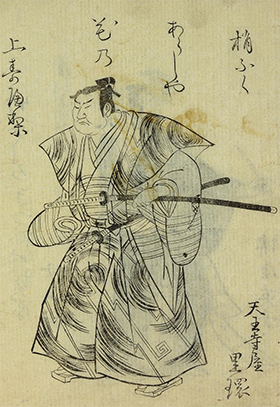 梢ふく
あらしや
花乃
上
天王寺屋
里環